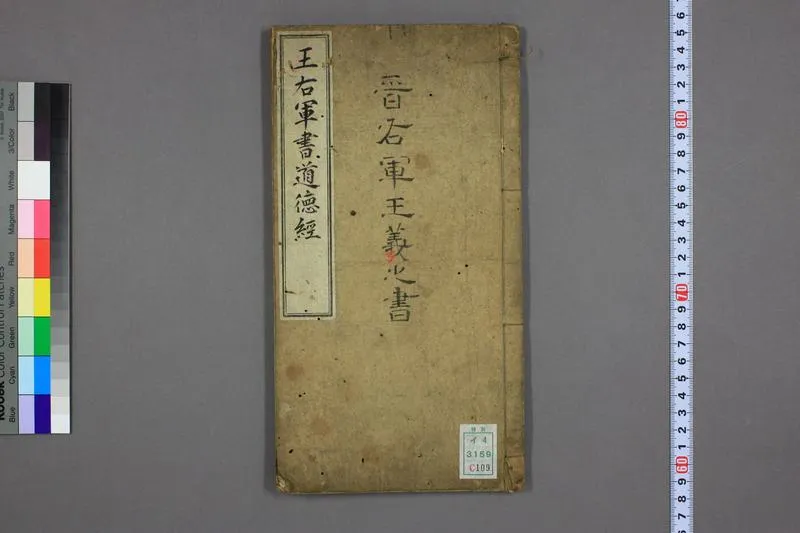 王右軍書道德經
晋右軍王義之書
特別
イ4
3159
C109
Black
3/Color
White
Magenta
Red
Yellow
Green
Cyan
Blue
Kodak Color Control Patches
6
5
4
3
2
1
80
9
8
7
6
5
4
3
2
1
70
9
8
7
6
5
4
3
2
1
60
9
8
7